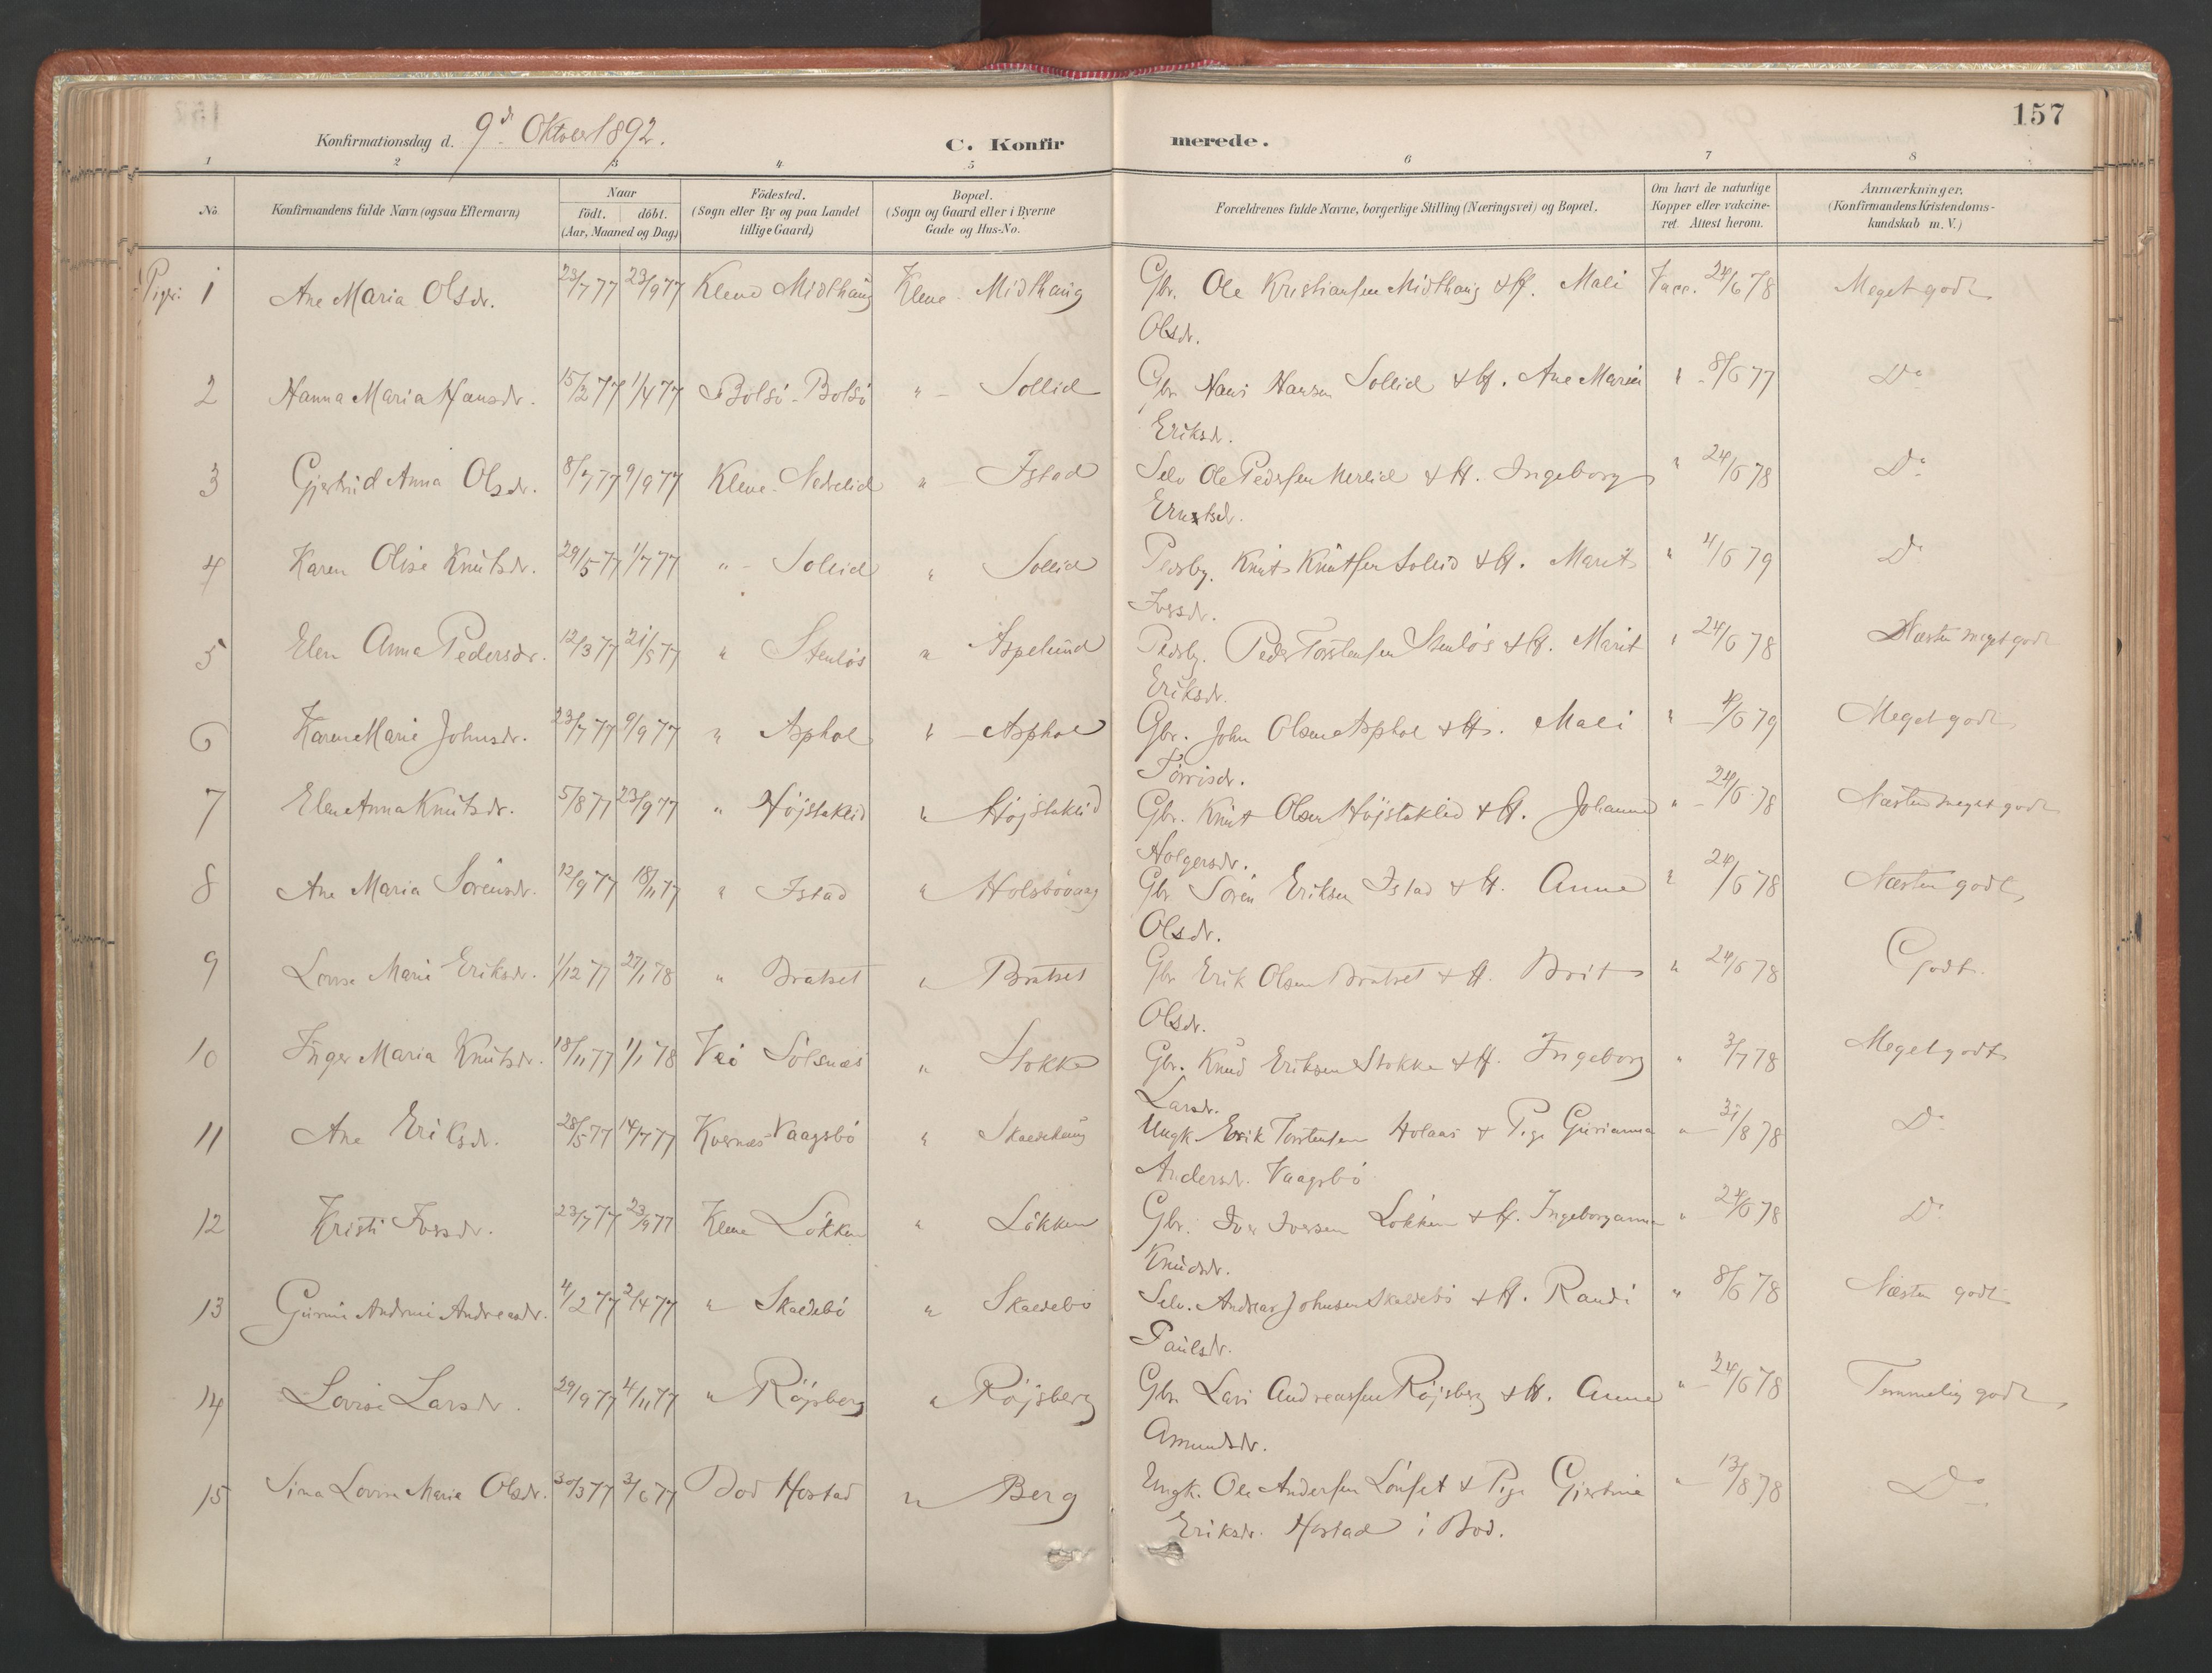 157
Konfirmationsdag d. 9de Oktober 1892.
C. Konfirmerede.
1 2 3 4 5 6 7 8
No.
Konfirmandens fulde Navn (ogsaa Efternavn)
Naar
födt. döbt.
(Aar, Maaned og Dag)
Födested.
(Sogn eller By og paa Landet
tillige Gaard)
Bopæl.
(Sogn og Gaard eller i Byerne
Gade og Hus-No.
Forældrenes fulde Navne, borgerlige Stilling (Næringsvei) og Bopæl.
Om havt de naturlige
Kopper eller vakcine-
ret. Attest herom.
Anmærkninger.
(Konfirmandens Kristendoms-
kundskab m. V.)
Piger: 1 Ane Maria Olsdr. 23/7 77 23/9 77 Kleve Midthaug Kleve Midthaug Gbr. Ole Kristiansen Midthaug & H. Mali Vacc. 24/6 78 Meget godt
Olsdr.
2 Hanna Maria Hansdr. 15/2 77 1/4 77 Bolsö - Bolsö " - Sollid Gbr. Hans Hansen Sollid & H. Ane Maria " 8/6 77 Do
Eriksdr.
3 Gjertrid Anna Olsdr. 8/7 77 9/9 77 Kleve - Nedrelid " - Istad Selv. Ole Pedersen Nerlid & H. Ingeborg " 24/6 78 Do
Ernstsdr.
4 Karen Olise Knutsdr. 29/5 77 1/7 77 " - Sollid " Sollid Pladsby. Knut Knutsen Sollid & H. Marit " 4/6 79 Do
Iversdr.
5 Elen Anna Pedersdr. 12/3 77 21/5 77 " Stenlös " Aspelund Pladsby. Peder Torstensen Stenlös & H. Marit " 24/6 78 Næsten meget godt
Eriksdr.
6 Karen Marie Johnsdr. 23/7 77 9/9 77 " Asphol " - Asphol Gbr. John Olsen Asphol & H. Mali " 4/6 79 Meget godt
Torrisdr.
7 Elen Anna Knutsdr. 5/8 77 23/9 77 " Höjstaklid " Höjstaklid Gbr. Knut Olsen Höjstaklid & H. Johanna " 24/6 78 Næsten meget godt
Holgersdr.
8 Ane Maria Sörensdr. 12/9 77 18/11 77 " Istad " Holsbövaag Gbr. Sören Eriksen Istad & H. Anne " 24/6 78 Næsten godt
Olsdr.
9 Lovise Marie Eriksdr. 1/12 77 27/1 78 " Bratset " Bratset Gbr. Erik Olsen Bratset & H. Brit " 24/6 78 Godt
Olsdr.
10 Inger Maria Knutsdr. 18/11 77 1/1 78 Veö Sölsnæs " Stokke Gbr. Knud Eriksen Stokke & H. Ingeborg " 3/7 78 Meget godt
Larsdr.
11 Ane Eriksdr. 28/5 77 14/7 77 Kvernæs Vaagsbö " Skaldehaug Ungk. Erik Torstensen Holaas & Pige Gurianna " 31/8 78 Do
Andersdr. Vaagsbö
12 Kristi Iversdr. 23/7 77 23/9 77 Kleve Lökken " Lökken Gbr. Iver Iversen Lökken & H. Ingeborganna " 24/6 78 Do
Knudsdr.
13 Gurine Andrine Andreasdr. 4/2 77 2/4 77 " Skaldebö " Skaldebö Selv. Andreas Johnsen Skaldebö & H. Randi " 8/6 78 Næsten godt
Paulsdr.
14 Lovise Larsdr. 29/9 77 4/11 77 " Röjsberg " Röjsberg Gbr. Lars Andreassen Röjsberg & H. Anne " 24/6 78 Temmelig godt
Amundsdr.
15 Sina Lovise Marie Olsdr. 30/3 77 3/6 77 Bod Hostad " Berg Ungk. Ole Andersen Lönset & Pige Gjertine " 13/8 78 Do
Eriksdr. Hostad i Bod.